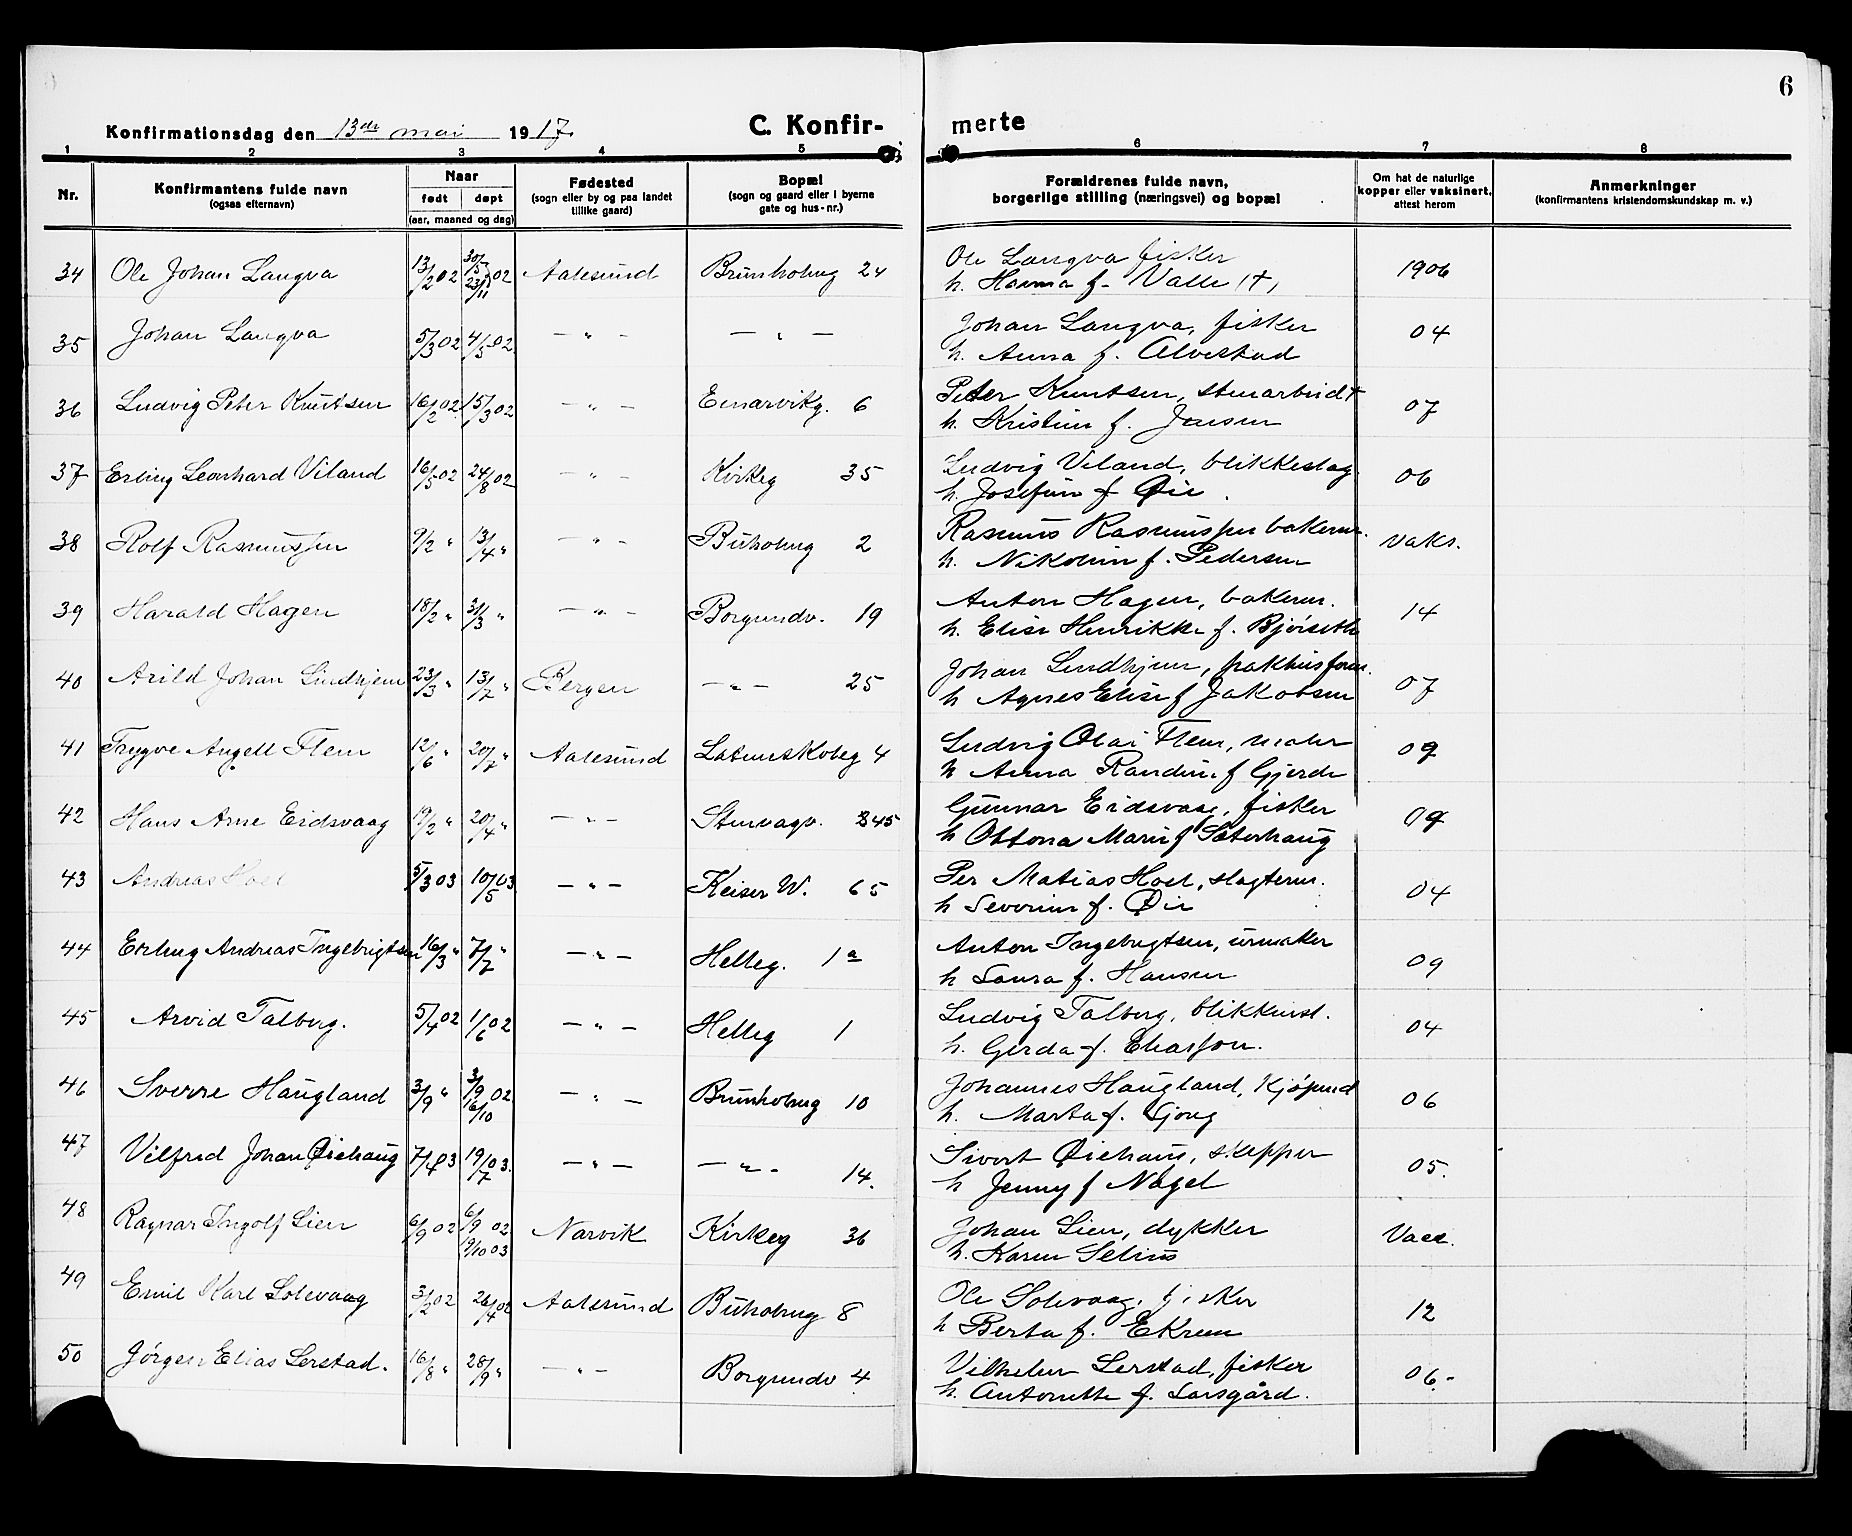 6
Konfirmationsdag den 13de mai 1917.
C. Konfir-merte
1 2 3 4 5 6 7 8
Nr.
Konfirmantens fulde navn
(ogsaa efternavn)
Naar
født døpt
(aar, maaned og dag)
Fødested
(sogn eller by og paa landet
tillike gaard)
Bopæl
(sogn og gaard eller i byerne
gate og hus-nr.)
Forældrenes fulde navn,
borgerlige stilling (næringsvei) og bopæl
Om hat de naturlige
kopper eller vaksinert,
attest herom
Anmerkninger
(konfirmantens kristendomskundskap m. v.)
34 Ole Johan Langva 13/2 02 30/5 23/11 02 Aalesund Brunholmg 24 Ole Langva fisker 1906
h. Hanna f. Valle (†)
35 Johan Langva 5/3 02 4/5 02 — " — — " — Johan Langva, fisker 04
h. Anna f. Alvestad
36 Ludvig Peter Knutsen 16/2 02 15/3 02 — " — Einarvikg. 6 Peter Knutsen, stenarbeid 07
h. Kristine f. Jensen
37 Erling Leonhard Viland 16/5 02 24/8 02 — " — Kirkeg 35 Ludvig Viland, blikkeslag. 06
h. Josefine f Øie.
38 Rolf Rasmussen 9/2 " 13/4 " — " — Buholmg 2 Rasmus Rasmussen bakerm. vaks.
h. Nikoline f. Pedersen
39 Harald Hagen 18/2 " 31/3 " — " — Borgundv. 19 Anton Hagen, bakerm. 14
h. Elise Henrikke f. Bjørseth
40 Arild Johan Lindhjem 23/3 " 13/7 " Bergen — " — 25 Johan Lindhjem, pakhusform. 07
h Agnes Elise f Jakobsen
41 Trygve Angell Flem 12/6 " 20/7 " Aalesund Latinskoleg 4 Ludvig Olai Flem, maler 09
h Anna Randine f Gjerde
42 Hans Arne Eidsvaag 19/2 " 20/4 " — " — Stenvagv. 845 Gunnar Eidsvaag, fisker 09
h Ottona Marie f Sæterhaug
43 Andreas Hoel 5/3 03 10/5 03 — " — Keiser W. 65 Per Matias Hoel, slagterm. 04
h Severine f. Øie
44 Erling Andreas Ingebrigtsen 16/3 " 7/7 " — " — Helleg. 1a Anton Ingebrigtsen, urmaker 09
h Laura f. Hansen
45 Arvid Talberg. 5/4 02 1/6 02 — " — Helleg 1 Ludvig Talberg, blikkensl. 04
h. Gerda f. Eliasson.
46 Sverre Haugland 3/9 " 3/9 16/10 02 — " — Brunholmg 10 Johannes Haugland, Kjøpmd 06
h. Marta f.
47 Vilfred Johan Øiehaug 7/4 03 19/7 03. — " — — " — 14. Sivert Øiehaug, skipper 05.
h Jenny f Nagel
48 Ragnar Ingolf Lien 6/9 02 6/9 02 9/10 03 Narvik Kirkeg 36 Johan Lien, dykker Vacc.
h. Karen Selius
49 Emil Karl Solevaag 3/2 02 26/4 02 Aalesund Buholmg 8 Ole Solevaag, fisker 12
h Berta f. Ekrem
50 Jørgen Elias Lerstad. 16/8 " 28/9 " — " — Borgundv 4 Vilhelm Lerstad, fisker 06.-
h. Antonette f. Larsgård.